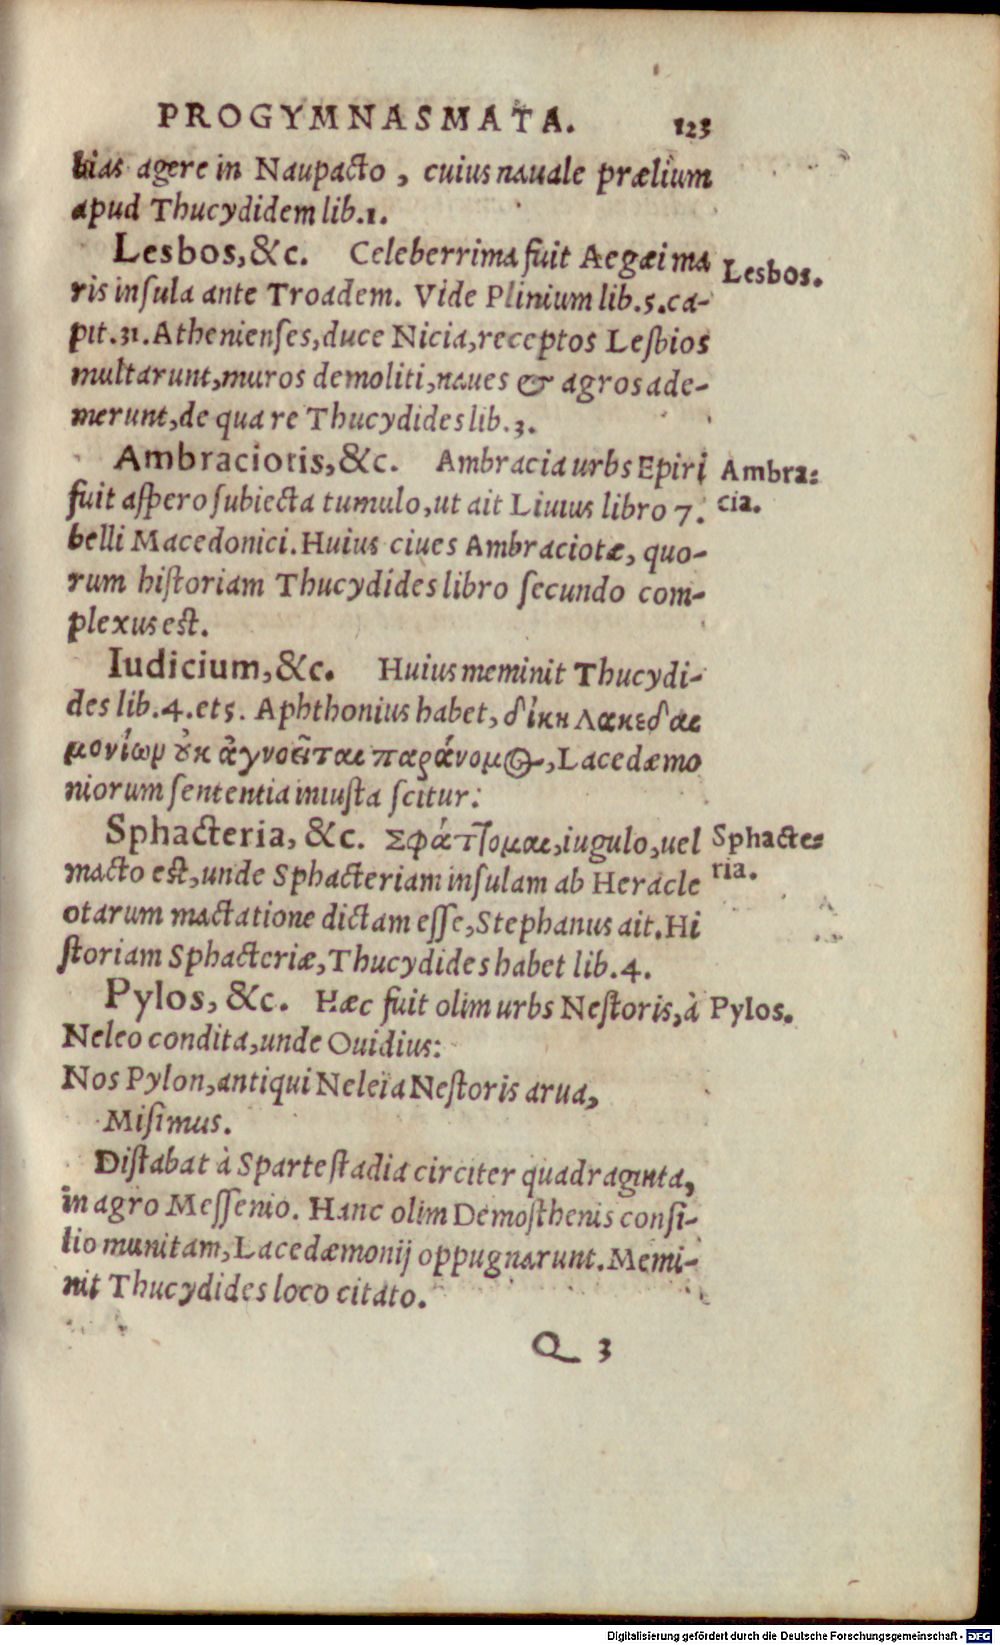 PROGYMNASMATA. 123
bias agere in Naupacto, cuius nauale prælium
apud Thucydidem lib.1.
Lesbos,&c. Celeberrima fuit Aegæi ma
Lesbos.
ris insula ante Troadem. Vide Plinium lib.5.ca-
pit.31. Athenienses, duce Nicia, receptos Lesbios
multarunt, muros demoliti, naues & agros ade-
merunt, de qua re Thucydides lib.3.
Ambraciotis,&c. Ambracia urbs Epiri
Ambra:
fuit aspero subiecta tumulo, ut ait Liuius libro 7.
cia.
belli Macedonici. Huius ciues Ambraciotæ, quo-
rum historiam Thucydides libro secundo com-
plexus est.
Iudicium,&c. Huius meminit Thucydi-
des lib.4. et 5. Aphthonius habet, δίκη Λακεδαι
μονίων οὐκ ἀγνοεῖται παράνομος, Lacedæmo
niorum sententia iniusta scitur:
Sphacteria, &c. Σφάττομαι, iugulo, uel
Sphacte:
macto est, unde Sphacteriam insulam ab Heracle
ria.
otarum mactatione dictam esse, Stephanus ait. Hi
storiam Sphacteriæ, Thucydides habet lib.4.
Pylos, &c. Hæc fuit olim urbs Nestoris, à
Pylos.
Neleo condita, unde Ouidius:
Nos Pylon, antiqui Neleia Nestoris arua,
Misimus.
Distabat à Sparte stadia circiter quadraginta,
in agro Messenio. Hanc olim Demosthenis consi-
lio munitam, Lacedæmonij oppugnarunt. Memi-
nit Thucydides loco citato.
Q 3
Digitalisierung gefördert durch die Deutsche Forschungsgemeinschaft - DFG